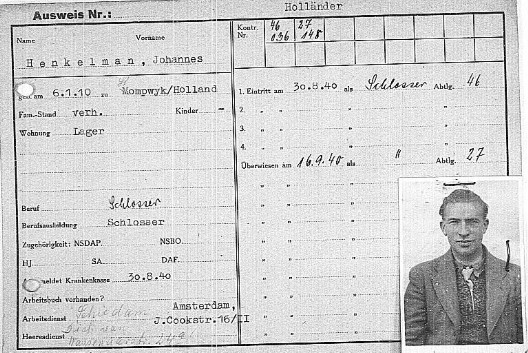 Holländer
Ausweis Nr.:
Kontr. Nr. 46 27
036 148
Name Vorname
Henkelman, Johannes
geb. am 6.1.10 zu Mompwyk/Holland
Fam.-Stand verh. Kinder -
Wohnung Lager
1. Eintritt am 30.8.40 als Schlosser Abtlg. 46
2. " " " "
3. " " " "
4. " " " "
Überwiesen am 16.9.40 als " Abtlg. 27
Beruf Schlosser
Berufsausbildung Schlosser
Zugehörigkeit: NSDAP. NSBO.
HJ. SA. DAF.
meldet Krankenkasse 30.8.40
Arbeitsbuch vorhanden?
Schiedam
Amsterdam,
Arbeitsdienst J.Cookstr.16/II
Heeresdienst